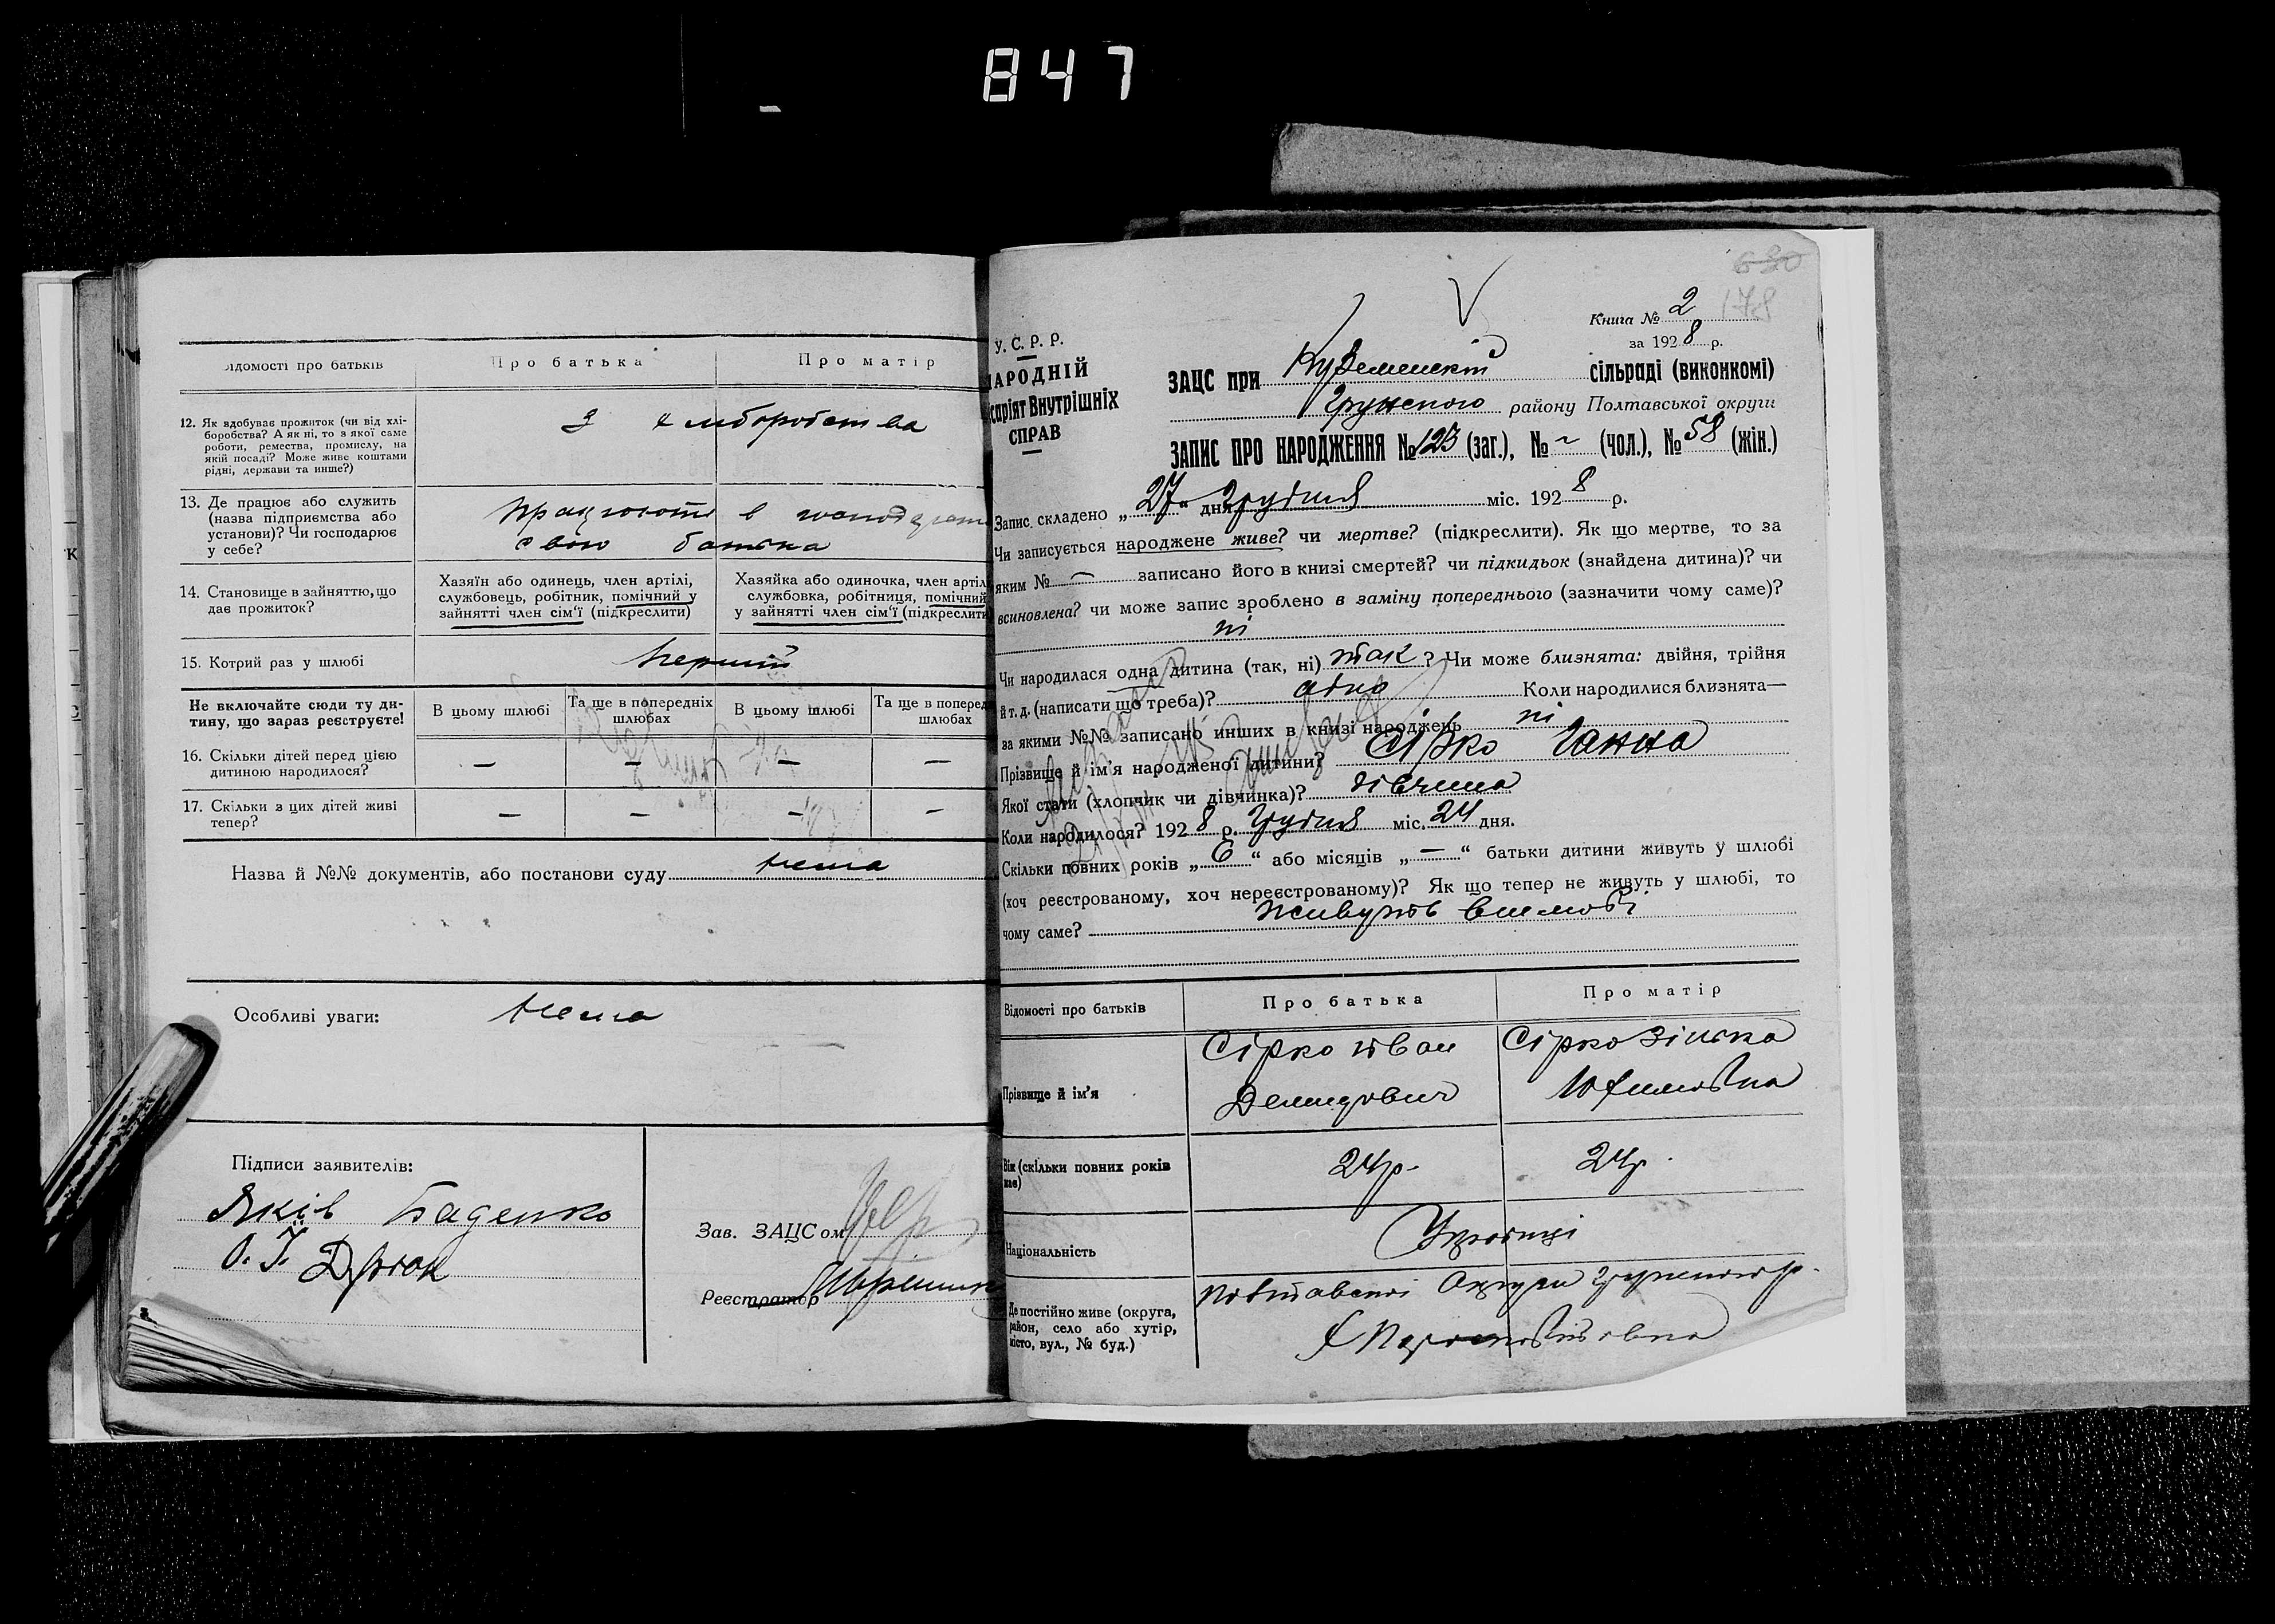 847
Відомості про батьків
Про батька
Про матір
12. Як здобуває прожиток (чи від хлі-
боробства? А як ні, то з якої саме
роботи, ремества, промислу, на
якій посаді? Може живе коштами
рідні, держави та инше?)
З хліборобства
13. Де працює або служить
(назва підприємства або
установи)? Чи господарює
у себе?
працюють в
свого батька
14. Становище в зайняттю, що
дає прожиток?
Хазяїн або одинець, член артілі,
службовець, робітник, помічний у
зайнятті член сім'ї (підкреслити)
Хазяйка або одиночка, член артіл
службовка, робітниця, помічний
у зайнятті член сім'ї (підкреслити
15. Котрий раз у шлюбі
перший
Не включайте сюди ту ди-
тину, що зараз реєструєте!
В цьому шлюбі
Та ще в попередніх
шлюбах
В цьому шлюбі
Та ще в поперед
шлюбах
16. Скільки дітей перед цією
дитиною народилося?
— — — —
17. Скільки з цих дітей живі
тепер?
— — — —
Назва й №№ документів, або постанови суду нема
Особливі уваги: нема
Підписи заявителів:
Яків Баденко
О. Т. Дрюк
Зав. ЗАЦСом
Реєстратор
630
178
Книга № 2
за 1928 р.
У. С. Р. Р.
НАРОДНІЙ
саріят Внутрішніх
СПРАВ
ЗАЦС при Куземенській сільраді (виконкомі)
Грунського району Полтавської округи
ЗАПИС ПРО НАРОДЖЕННЯ № 123 (заг.), № ~ (чол.), № 58 (жін.)
Запис складено „27“ дня Грудня міс. 1928 р.
Чи записується народжене живе? чи мертве? (підкреслити). Як що мертве, то за
яким № — записано його в книзі смертей? чи підкидьок (знайдена дитина)? чи
всиновлена? чи може запис зроблено в заміну попереднього (зазначити чому саме)?
ні
Чи народилася одна дитина (так, ні) так? Чи може близнята: двійня, трійня
й т. д. (написати що треба)? одно Коли народилися близнята—
за якими №№ записано инших в книзі народжень ні
Прізвище й ім'я народженої дитини? Сірко Ганна
Якої стати (хлопчик чи дівчинка)? дівчина
Коли народилося? 1928 р. Грудня міс. 24 дня.
Скільки повних років „6“ або місяців „—“ батьки дитини живуть у шлюбі
(хоч реєстрованому, хоч нереєстрованому)? Як що тепер не живуть у шлюбі, то
чому саме? живуть вшлюбі
Відомості про батьків
Про батька
Про матір
Прізвище й ім'я
Сірко Иван
Демидович
Сірко Зінька
Юхимовна
Вік (скільки повних років
має)
24 р.
24 р.
Національність
Українці
Де постійно живе (округа,
район, село або хутір,
місто, вул., № буд.)
Полтавської Округи Грунського р.